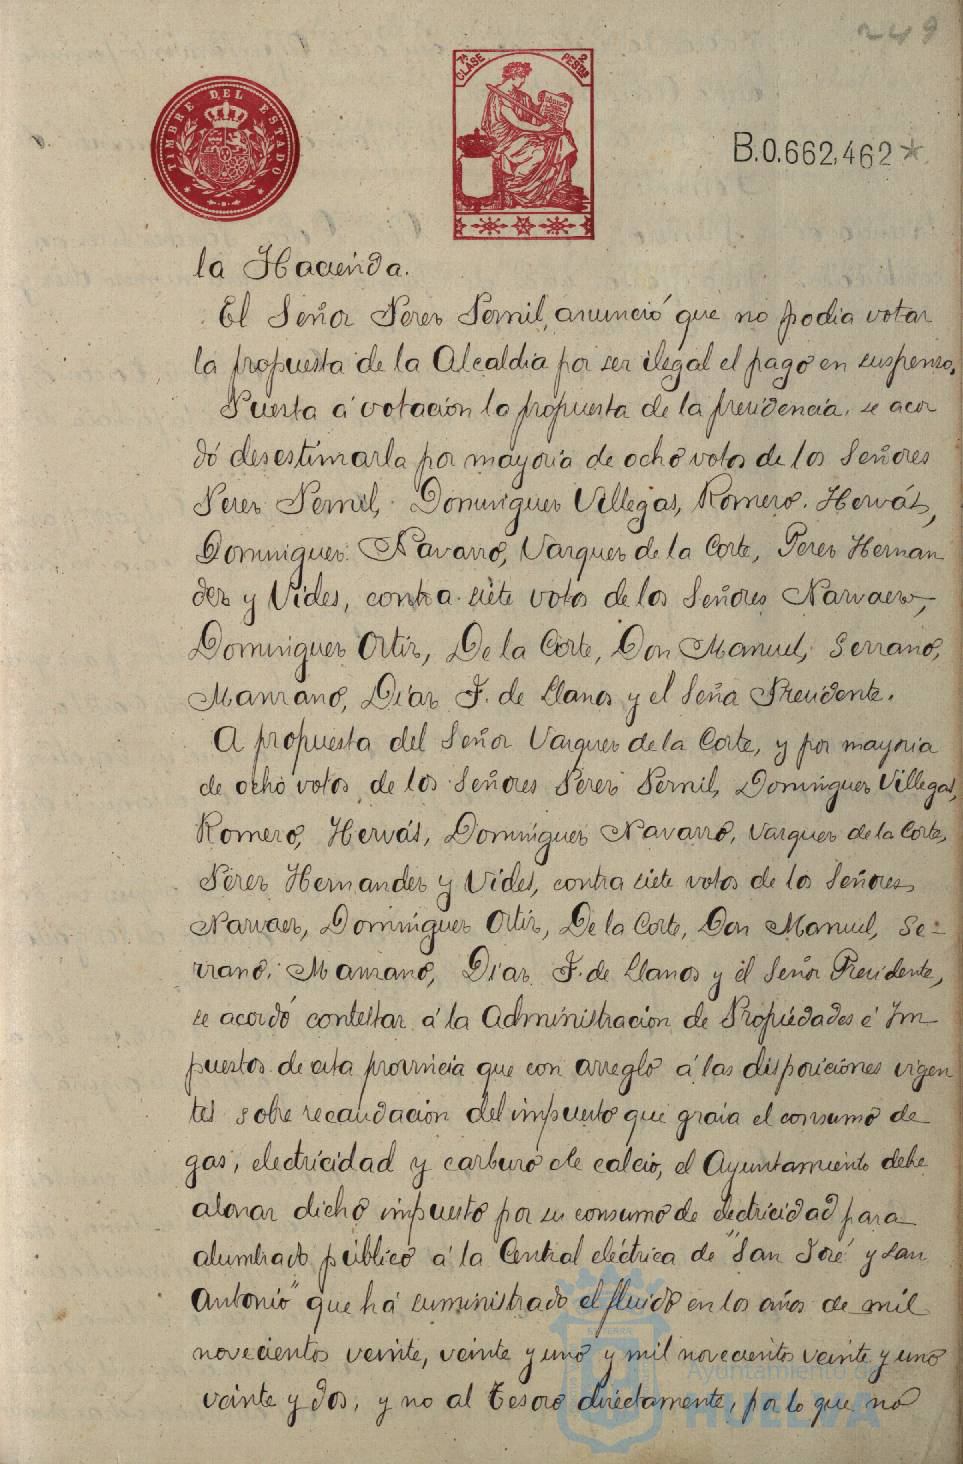 249
TIMBRE DEL ESTADO
7ª CLASE 2 PESTAS
B.0.662,462*
la Hacienda.
El Señor Perez Pernil, anunció que no podia votar
la propuesta de la Alcaldia por ser ilegal el pago en suspenso.
Puesta á votación la propuesta de la presidencia, se acor
dó desestimarla por mayoria de ocho votos de los Señores
Perez Pernil, Dominguez Villegas, Romero, Hervás,
Dominguez Navarro, Vazquez de la Corte, Perez Hernan
dez y Vides, contra siete votos de los Señores Narvaez,
Dominguez Ortiz, De la Corte, Don Manuel, Serrano,
Manzano, Diaz F. de Llanos y el Seña Presidente.
A propuesta del Señor Vazquez de la Corte, y por mayoria
de ocho votos de los Señores Pérez Pernil, Dominguez Villegas,
Romero, Hervás, Domínguez Navarro, Vazquez de la Corte,
Pérez Hernandez y Vides, contra siete votos de los Señores
Narvaez, Domínguez Ortiz, De la Corte, Don Manuel, Se-
rrano, Manzano, Diaz F. de Llanos y el Señor Presidente,
se acordó contestar á la Administración de Propiedades é Im
puestos de esta provincia que con arreglo á las disposiciones vigen
tes sobre recaudación del impuesto que grava el consumo de
gas, electricidad y carburo de calcio, el Ayuntamiento debe
abonar dicho impuesto por su consumo de electricidad para
alumbrado público á la Central eléctrica de "San José y San
Antonio" que há suministrado el fluido en los años de mil
novecientos veinte, veinte y uno y mil novecientos veinte y uno
veinte y dos, y no al Tesoro directamente, por lo que no
Ayuntamiento de
HUELVA